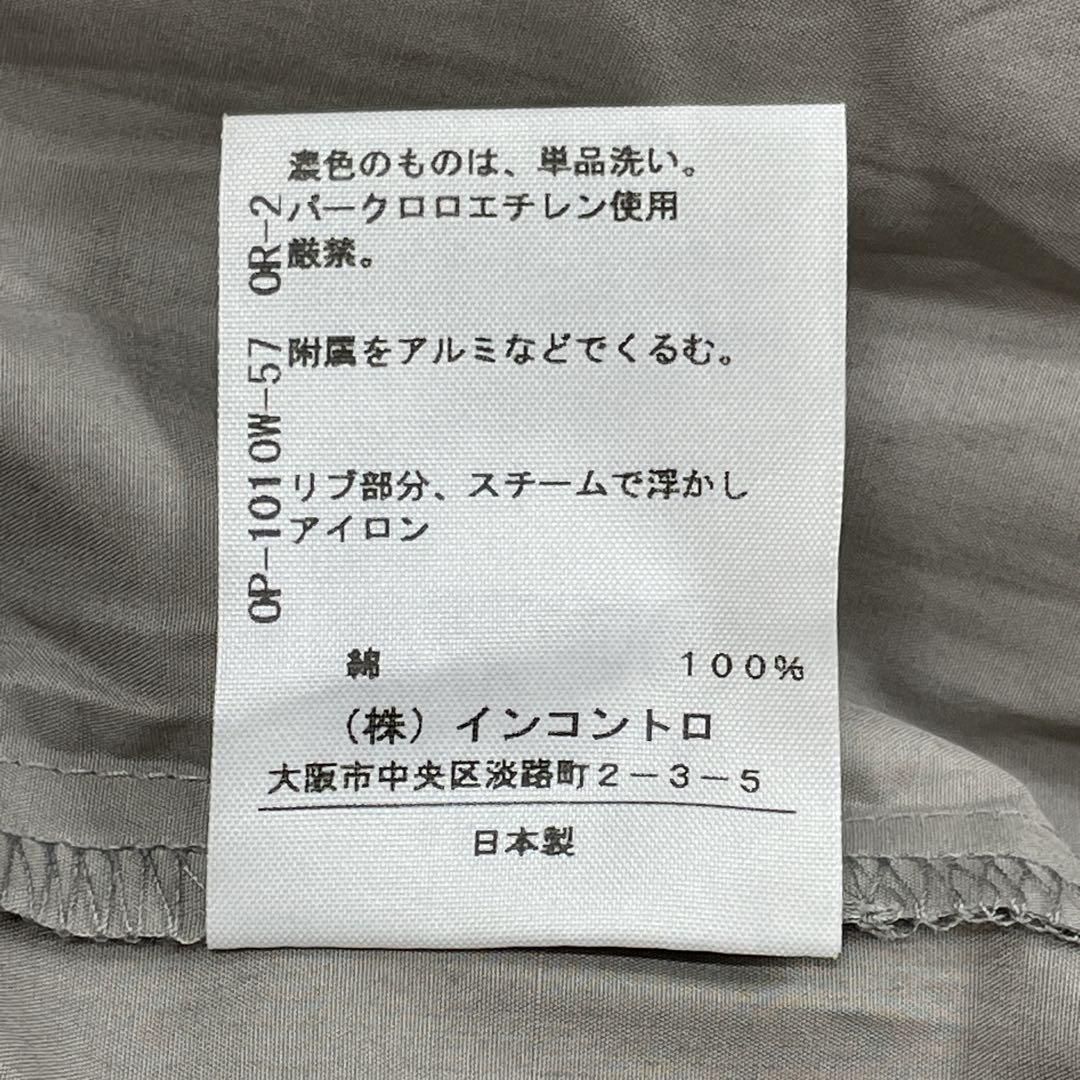 濃色のものは、単品洗い。
パークロロエチレン使用
厳禁。
附属をアルミなどでくるむ。
リブ部分、スチームで浮かし
アイロン
OP-1010W-57 OR-2
綿 100%
(株)インコントロ
大阪市中央区淡路町2-3-5
日本製